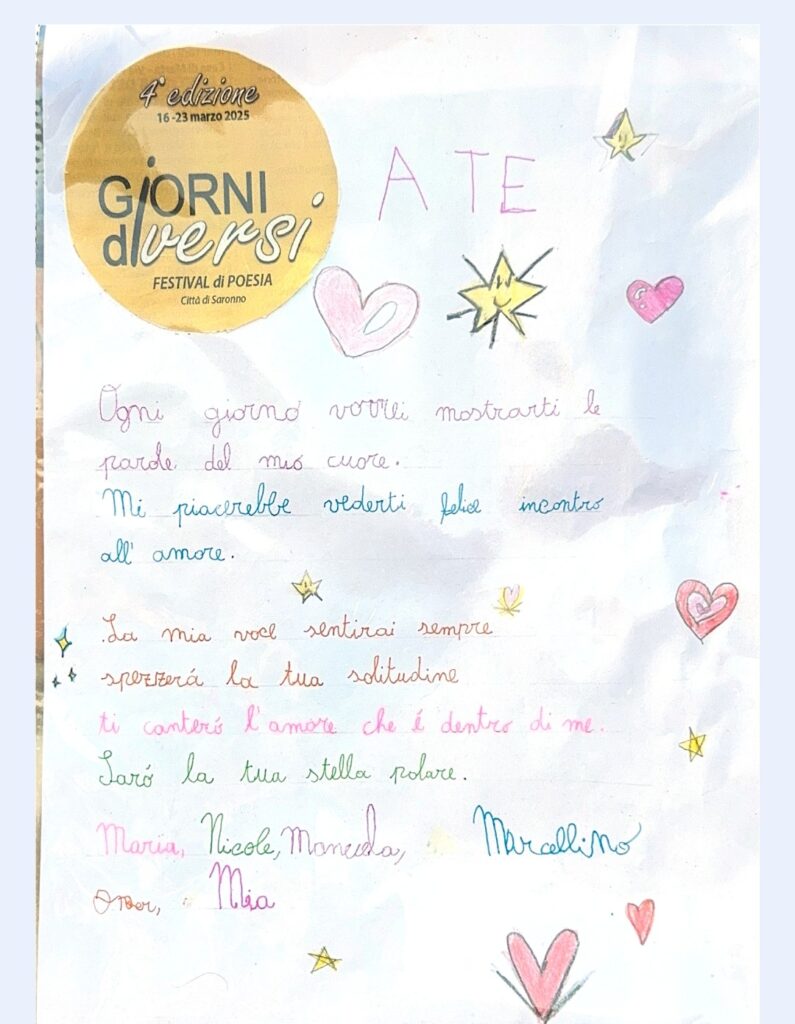 4ª edizione
16-23 marzo 2025
GiORNI
diversi
FESTIVAL di POESIA
Città di Saronno
A TE
Ogni giorno vorrei mostrarti le
parole del mio cuore.
Mi piacerebbe vederti felice incontro
all' amore.
La mia voce sentirai sempre
spezzerá la tua solitudine
ti canteró l'amore che é dentro di me.
Saró la tua stella polare.
Maria, Nicole, Marcellino
Mia